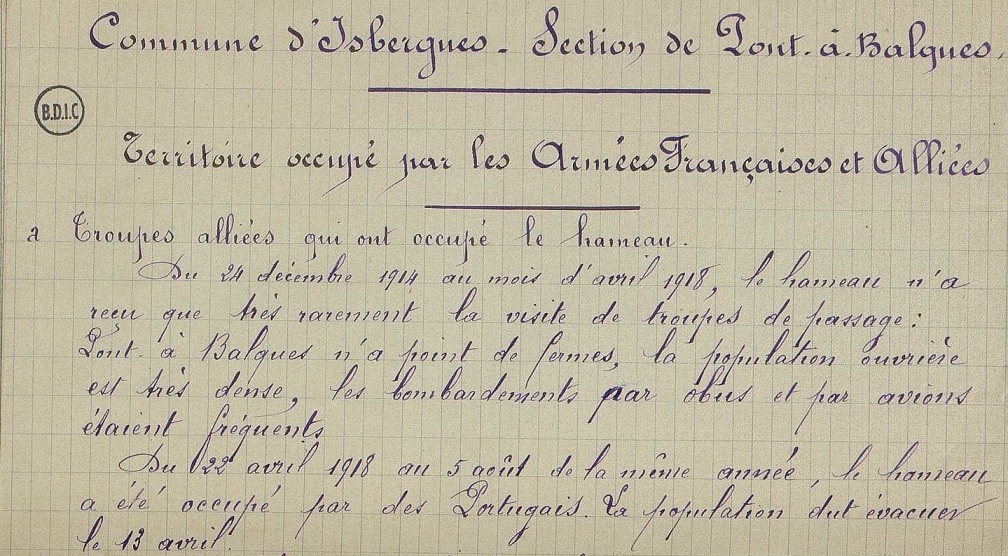 Commune d'Isbergues - Section de Pont. à. Balques.
B.D.I.C
Territoire occupé par les Armées Françaises et Alliées
a Troupes alliées qui ont occupé le hameau.
Du 24 décembre 1914 au mois d'avril 1918, le hameau n'a
reçu que très rarement la visite de troupes de passage :
Pont. à Balques n'a point de fermes, la population ouvrière
est très dense, les bombardements par obus et par avions
étaient fréquents
Du 22 avril 1918 au 5 août de la même année, le hameau
a été occupé par des Portugais. La population dut évacuer
le 13 avril.